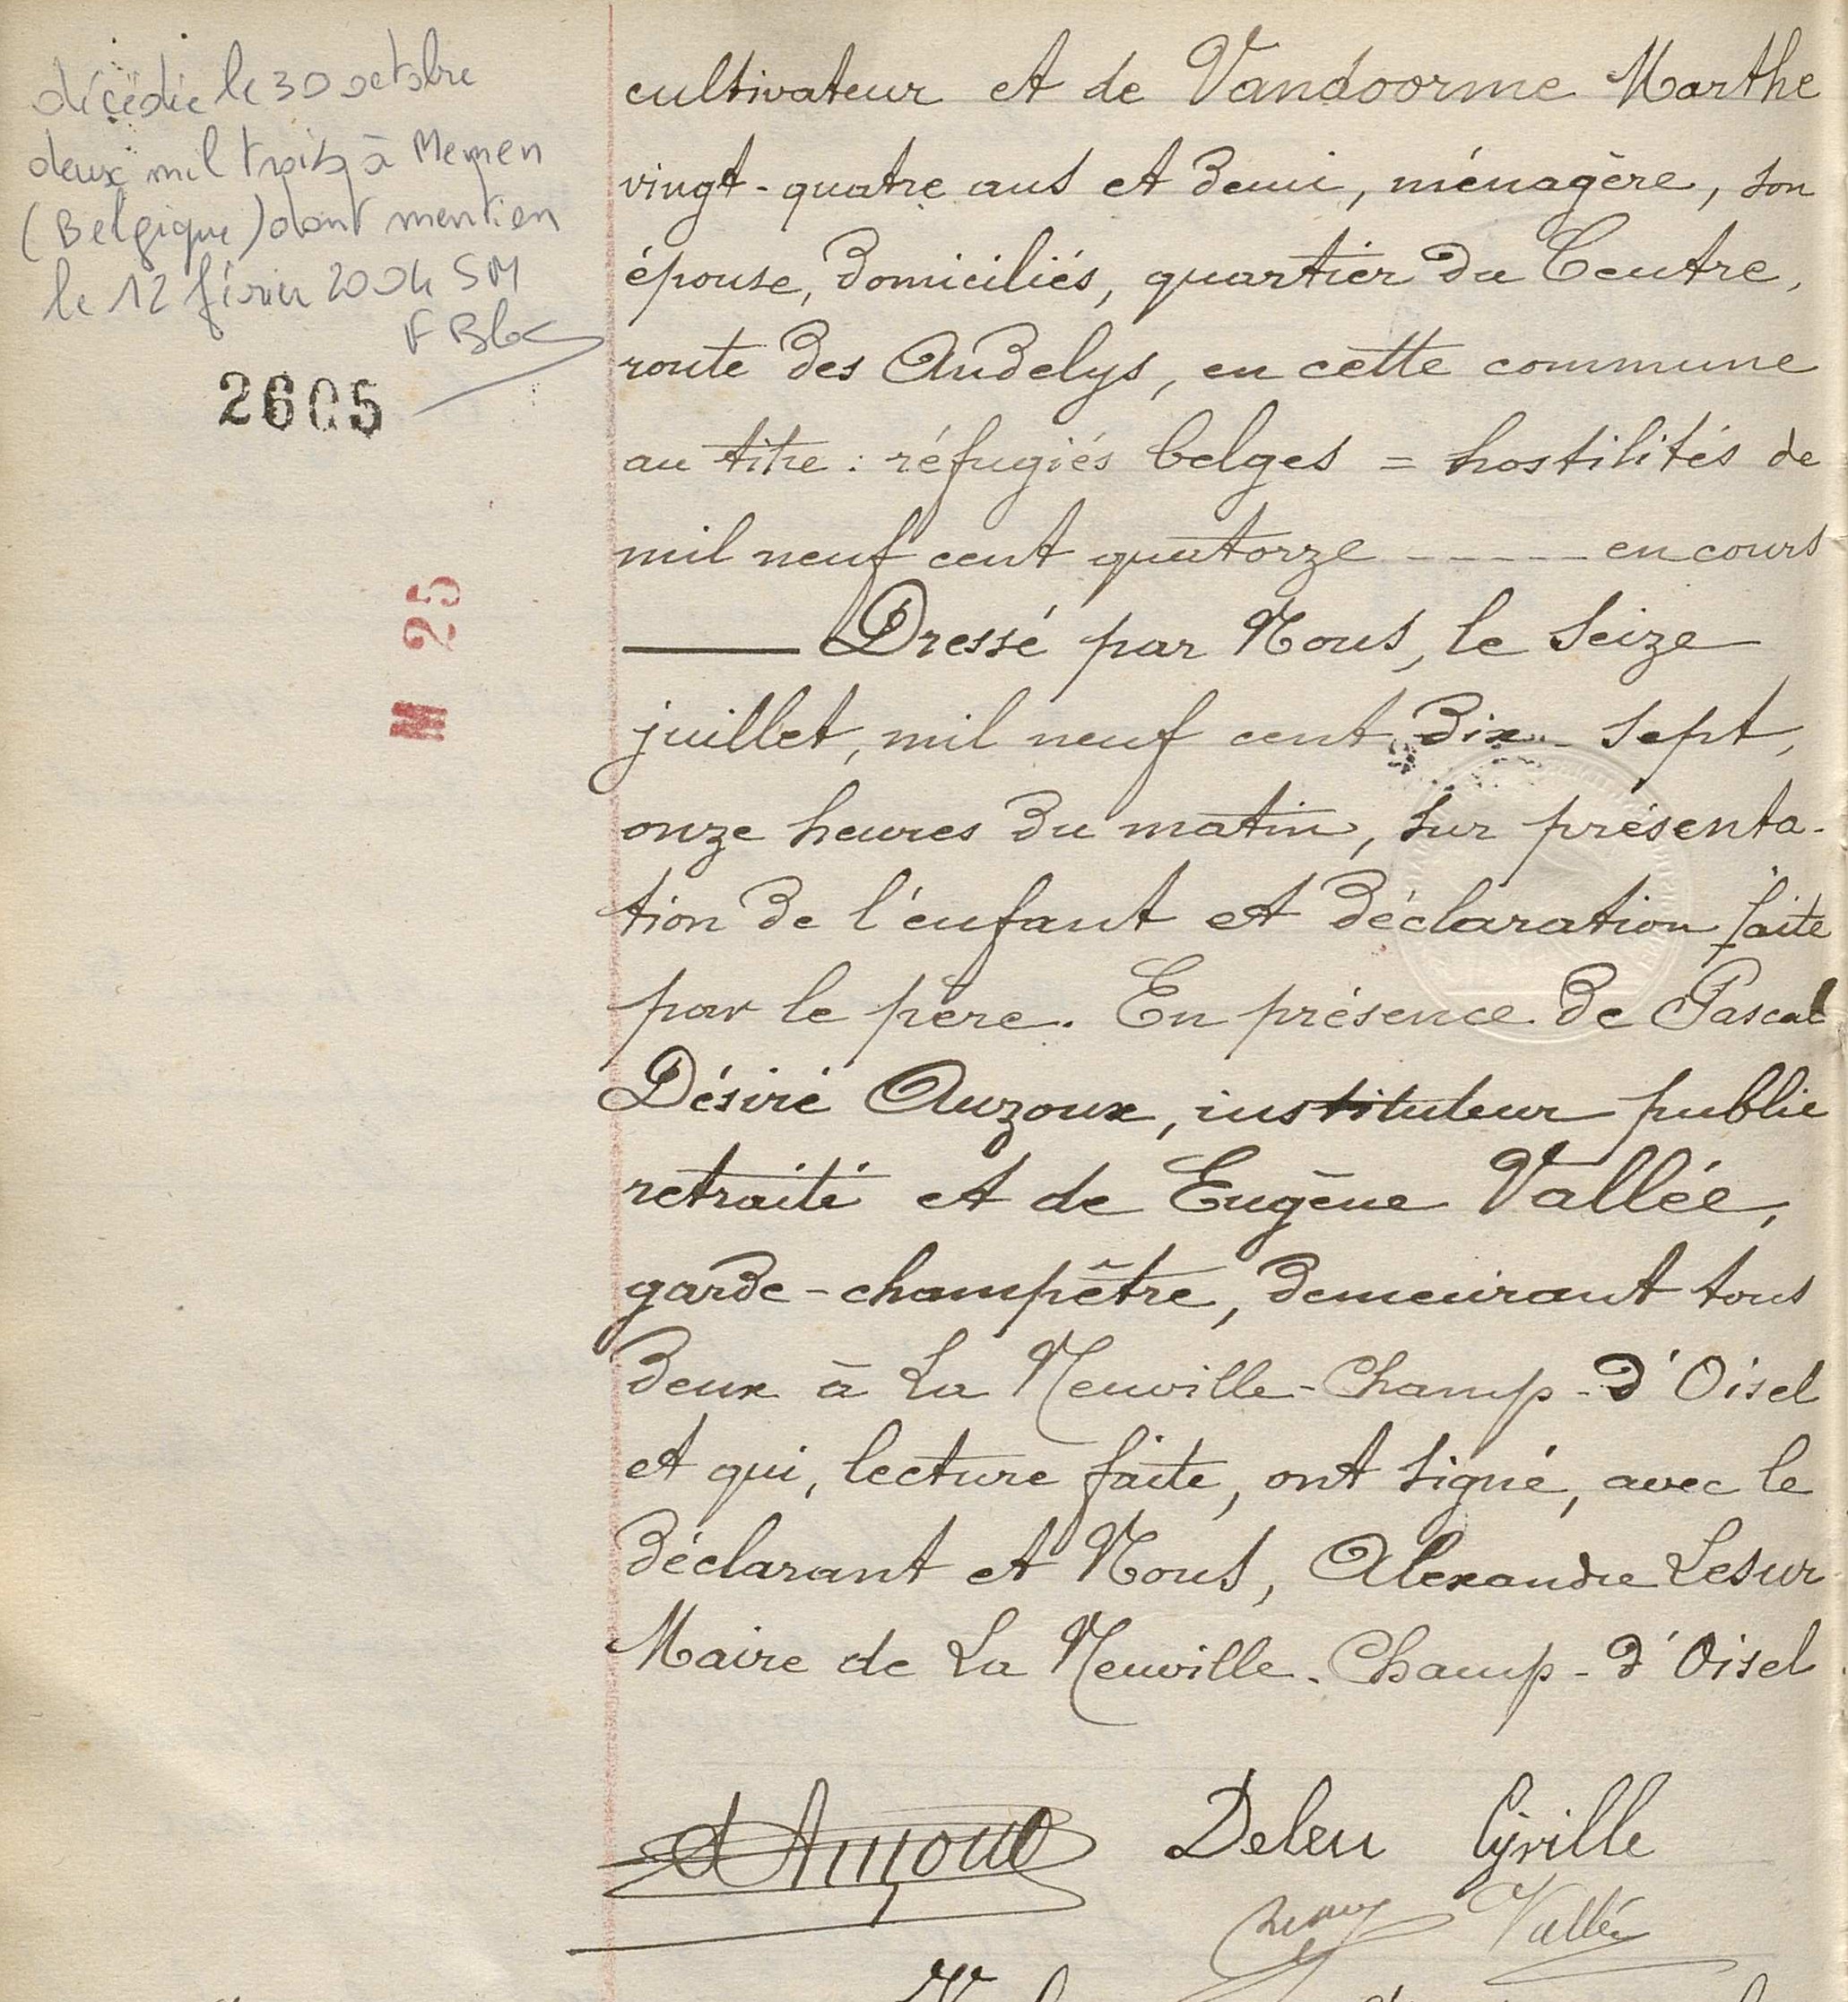 décédée le 30 octobre
deux mil trois à Menen
(Belgique) dont mention
le 12 février 2004 SM
2605
M 25
cultivateur et de Vandoorme Marthe
vingt-quatre ans et demi, ménagère, son
épouse, domiciliés, quartier du Centre,
route des Andelys, en cette commune
au titre : réfugiés belges = hostilités de
mil neuf cent quatorze ----- en cours
—— Dressé par Nous, le seize
juillet, mil neuf cent dix-sept,
onze heures du matin, sur présenta-
tion de l'enfant et déclaration faite
par le père. En présence de Pascal
Désiré Auzoux, instituteur public
retraité et de Eugène Vallée,
garde-champêtre, demeurant tous
deux à La Neuville-Champ-d'Oisel
et qui, lecture faite, ont signé, avec le
déclarant et Nous, Alexandre Lesur
Maire de La Neuville-Champ-d'Oisel
dAuzoux Deleu Cyrille
Vallée